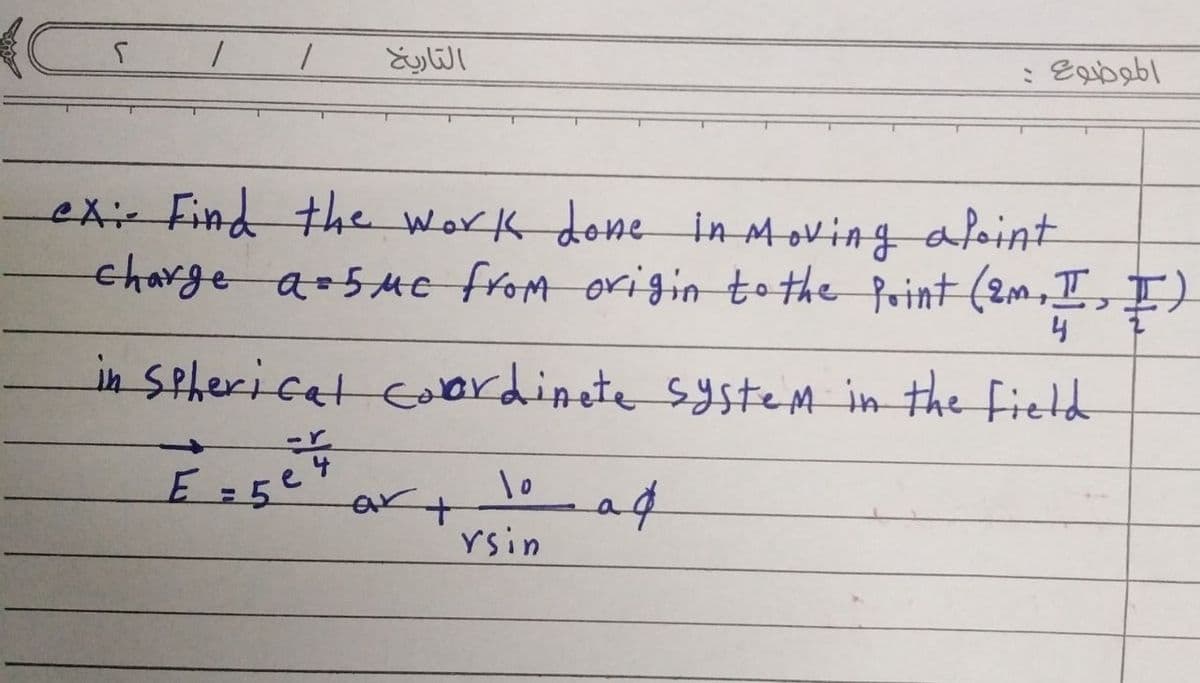 الموضوع : التاريخ / / ؟
ex:- Find the work done in Moving a Point
charge Q=5 μc from origin to the Point (2m, π/4, π/2)
in spherical coordinete system in the field
E = 5 e^(-r/4) ar + 10/rsin aϕ